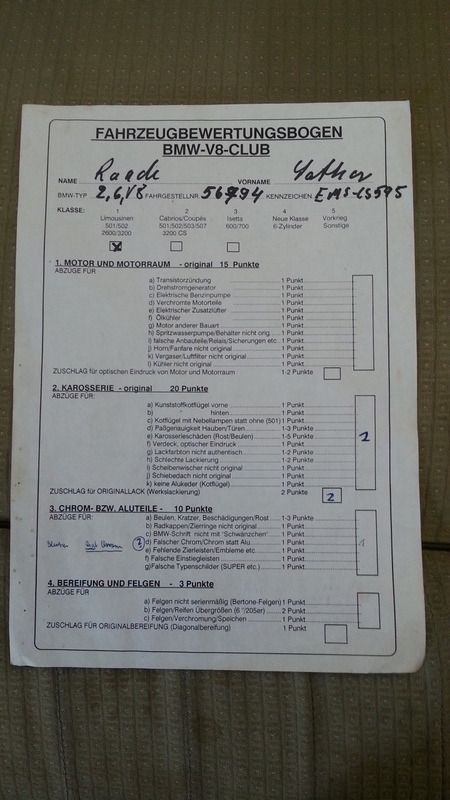 FAHRZEUGBEWERTUNGSBOGEN
BMW-V8-CLUB
NAME Raade VORNAME
BMW-TYP 2,6,V8 FAHRGESTELLNR. KENNZEICHEN EMS-LS595
KLASSE: 1 2 3 4 5
Limousinen Cabrios/Coupés Isetta Neue Klasse Vorkrieg
501/502 501/502/503/507 600/700 6-Zylinder Sonstige
2600/3200 3200 CS
1. MOTOR UND MOTORRAUM - original 15 Punkte
ABZÜGE FÜR
a) Transistorzündung 1 Punkt
b) Drehstromgenerator 1 Punkt
c) Elektrische Benzinpumpe 1 Punkt
d) Verchromte Motorteile 1 Punkt
e) Elektrischer Zusatzlüfter 1 Punkt
f) Ölkühler 1 Punkt
g) Motor anderer Bauart 1 Punkt
h) Spritzwasserpumpe/Behälter nicht orig. 1 Punkt
i) falsche Anbauteile/Relais/Sicherungen etc. 1 Punkt
j) Horn/Fanfare nicht original 1 Punkt
k) Vergaser/Luftfilter nicht original 1 Punkt
l) Kühler nicht original 1 Punkt
ZUSCHLAG für optischen Eindruck von Motor und Motorraum 1-2 Punkte
2. KAROSSERIE - original 20 Punkte
ABZÜGE FÜR:
a) Kunststoffkotflügel vorne 1 Punkt
b) " hinten 1 Punkt
c) Kotflügel mit Nebellampen statt ohne (501) 1 Punkt
d) Paßgenauigkeit Hauben/Türen 1-3 Punkte
e) Karosserieschäden (Rost/Beulen) 1-5 Punkte
f) Verdeck, optischer Eindruck 1 Punkt
g) Lackfarbton nicht authentisch 1-2 Punkte
h) Schlechte Lackierung 1-2 Punkte
i) Scheibenwischer nicht original 1 Punkt
j) Schiebedach nicht original 1 Punkt
k) keine Alukeder (Kotflügel) 1 Punkt
1
ZUSCHLAG für ORIGINALLACK (Werkslackierung) 2 Punkte 2
3. CHROM- BZW. ALUTEILE - 10 Punkte
ABZÜGE FÜR:
a) Beulen, Kratzer, Beschädigungen/Rost 1-3 Punkte
b) Radkappen/Zierringe nicht original 1 Punkt
c) BMW-Schrift nicht mit "Schwänzchen" 1 Punkt
d) Falscher Chrom/Chrom statt Alu 1 Punkt
e) Fehlende Zierleisten/Embleme etc. 1 Punkt
f) Falsche Einstiegleisten 1 Punkt
g) Falsche Typenschilder (SUPER etc.) 1 Punkt
1
4. BEREIFUNG UND FELGEN - 3 Punkte
ABZÜGE FÜR:
a) Felgen nicht serienmäßig (Bertone-Felgen) 1 Punkt
b) Felgen/Reifen Übergrößen (6"/205er) 2 Punkt
c) Felgen/Verchromung/Speichen 1 Punkt
ZUSCHLAG FÜR ORIGINALBEREIFUNG (Diagonalbereifung) 1 Punkt